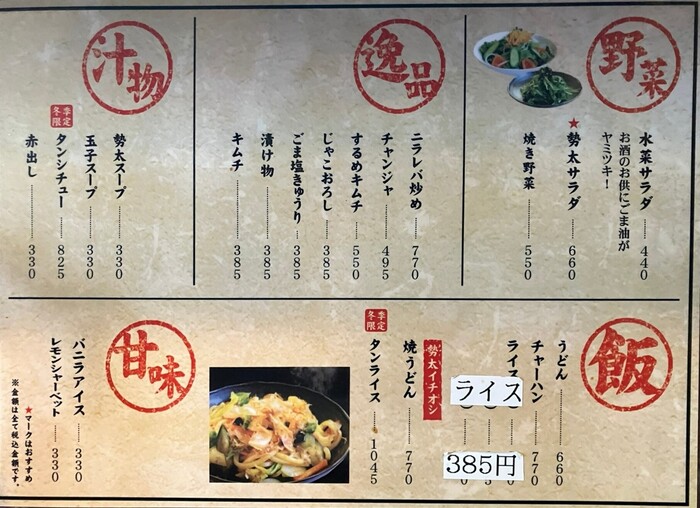 野菜
水菜サラダ 440
お酒のお供にごま油が
ヤミツキ！
★勢太サラダ 660
焼き野菜 550
逸品
ニラレバ炒め 770
チャンジャ 495
するめキムチ 550
じゃこおろし 385
ごま塩きゅうり 385
漬け物 385
キムチ 385
汁物
勢太スープ 330
玉子スープ 330
冬季限定
タンシチュー 825
赤出し 330
飯
うどん 660
チャーハン 770
ライス
ライス
385円
勢太イチオシ
焼うどん 770
冬季限定
タンライス 1045
甘味
バニラアイス 330
レモンシャーベット 330
★マークはおすすめ
※金額は全て税込金額です。